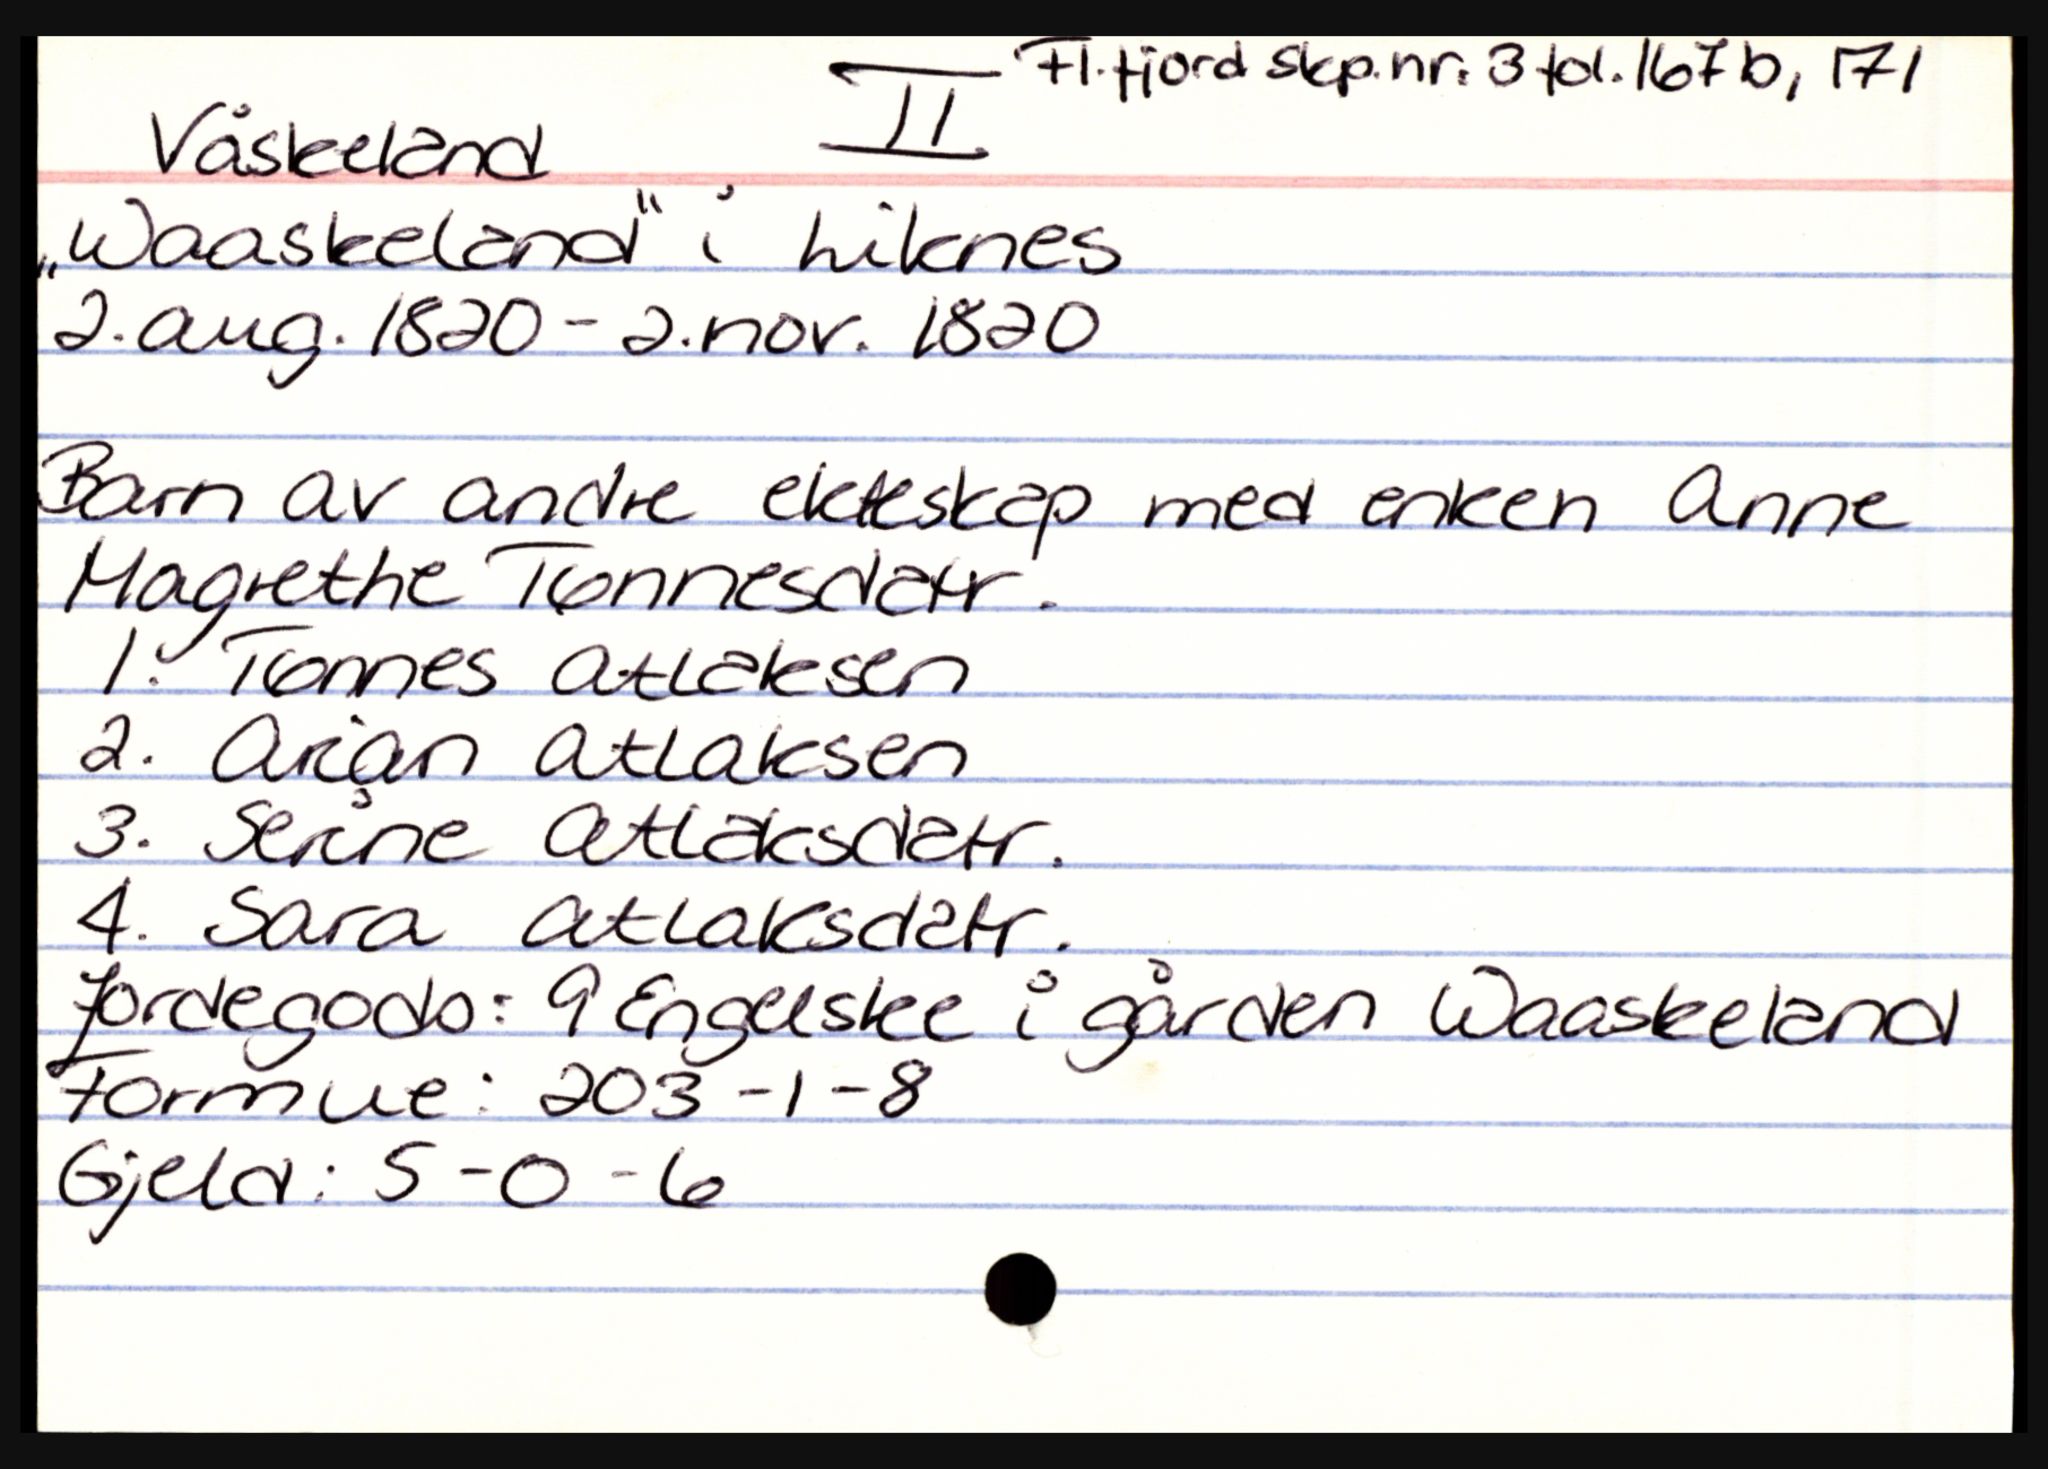 Fl.fjord skp.nr. 3 fol. 167b, 171
II
Våskeland
„Waaskeland" i Liknes
2. aug. 1820 - 2. nov. 1820
Barn av andre ekteskap med enken Anne
Magrethe Tønnesdatr.
1. Tønnes Atlaksen
2. Arian Atlaksen
3. Serine Atlaksdatr.
4. Sara Atlaksdatr.
Jordegods: 9 Engelske i gården Waaskeland
Formue: 203 - 1 - 8
Gjeld: 5 - 0 - 6